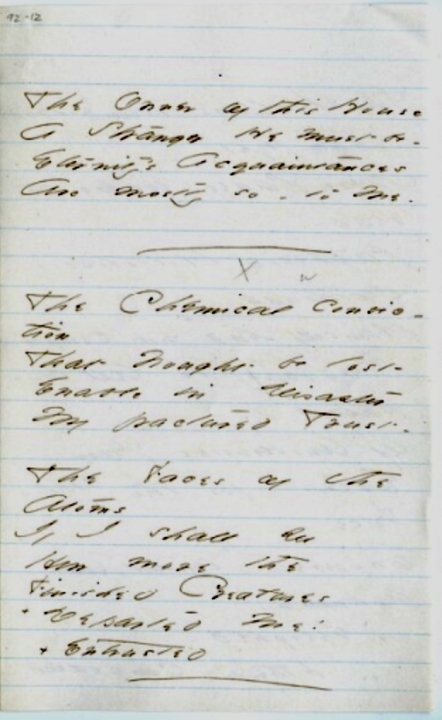 92-12
The Owner of this House
A Stranger He must be -
Eternity's Acquaintances
Are mostly so - to me.
X
The Chemical convic-
tion
That Nought be lost
Enable in Disaster
My fractured Trust -
The Faces of the
Atoms
If I shall see
How more the
Finished Creatures
+ Departed me!
+ Entrusted